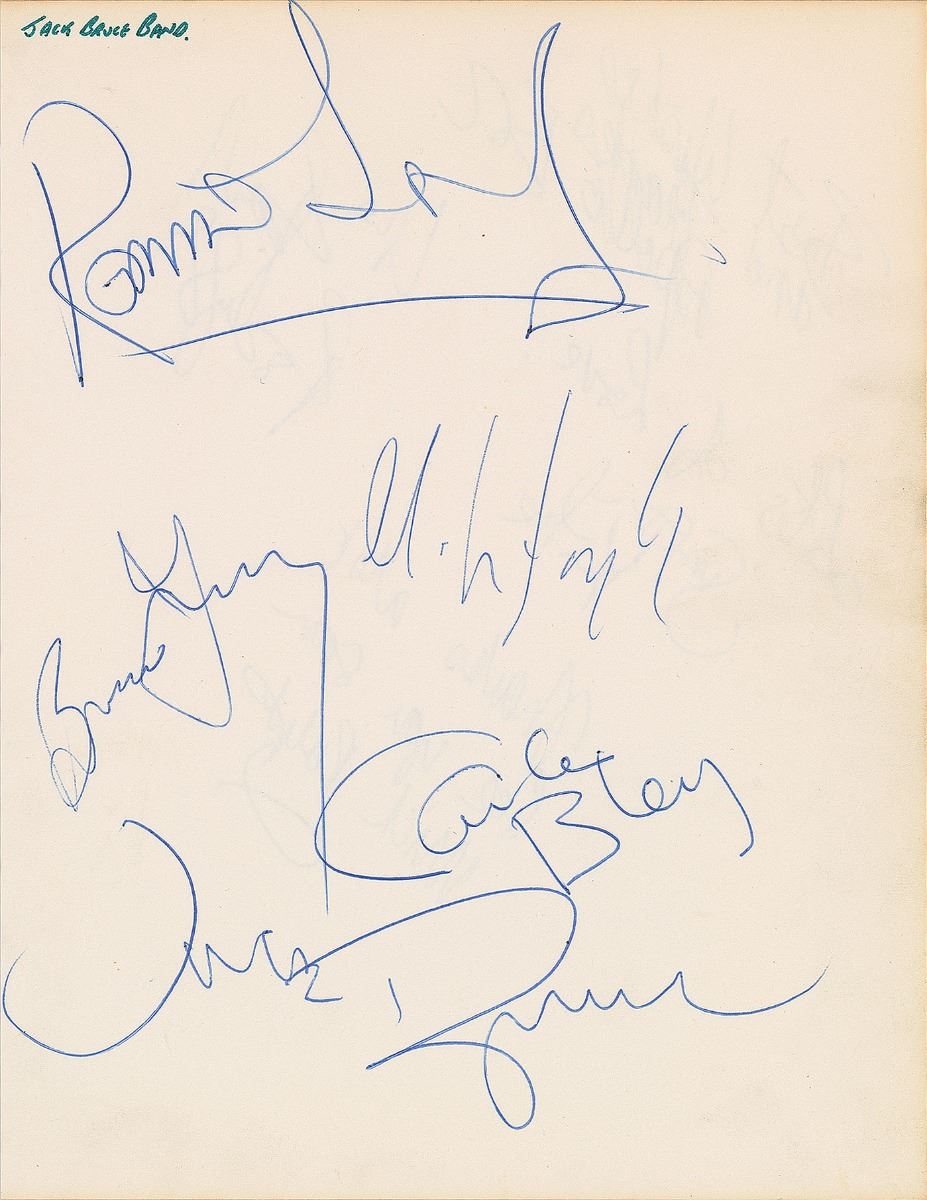 JACK BRUCE BAND.
Ronnie Leahy
Bruce Gary
Carla
Bley
Jack Bruce